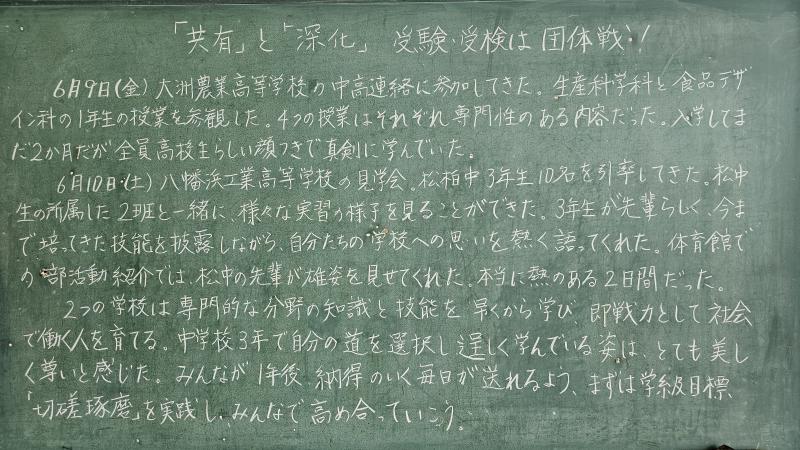 「共有」と「深化」 受験・受検は団体戦!!
6月9日(金) 大洲農業高等学校の中高連絡に参加してきた。生産科学科と食品デザ
イン科の1年生の授業を参観した。4つの授業はそれぞれ専門性のある内容だった。入学してま
だ2か月だが全員高校生らしい顔つきで真剣に学んでいた。
6月10日(土) 八幡浜工業高等学校の見学会。松柏中3年生10名を引率してきた。松中
生の所属した2班と一緒に、様々な実習の様子を見ることができた。3年生が先輩らしく、今ま
で培ってきた技能を披露しながら、自分たちの学校への思いを熱く語ってくれた。体育館で
の部活動紹介では、松中の先輩が雄姿を見せてくれた。本当に熱のある2日間だった。
2つの学校は専門的な分野の知識と技能を早くから学び、即戦力として社会
で働く人を育てる。中学校3年で自分の道を選択し逞しく学んでいる姿は、とても美し
く尊いと感じた。みんなが1年後、納得のいく毎日が送れるよう、まずは学級目標、
「切磋琢磨」を実践し、みんなで高め合っていこう。